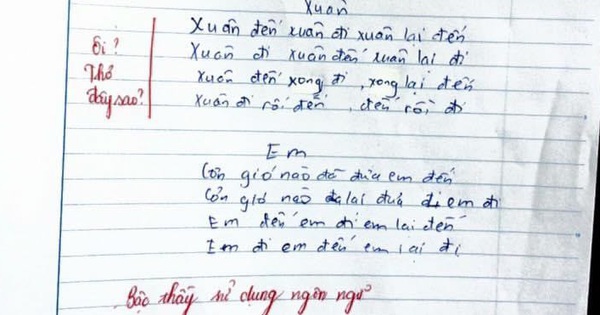 Xuân
Xuân đến xuân đi xuân lại đến
Xuân đi xuân đến xuân lại đi
Xuân đến xong đi, xong lại đến
Xuân đi rồi đến, đến rồi đi
Ôi?
Thơ
đây sao?
Em
Cơn gió nào đã đưa em đến
Cơn gió nào lại đưa em đi
Em đến em đi em lại đến
Em đi em đến em lại đi
Bậc thầy sử dụng ngôn ngữ